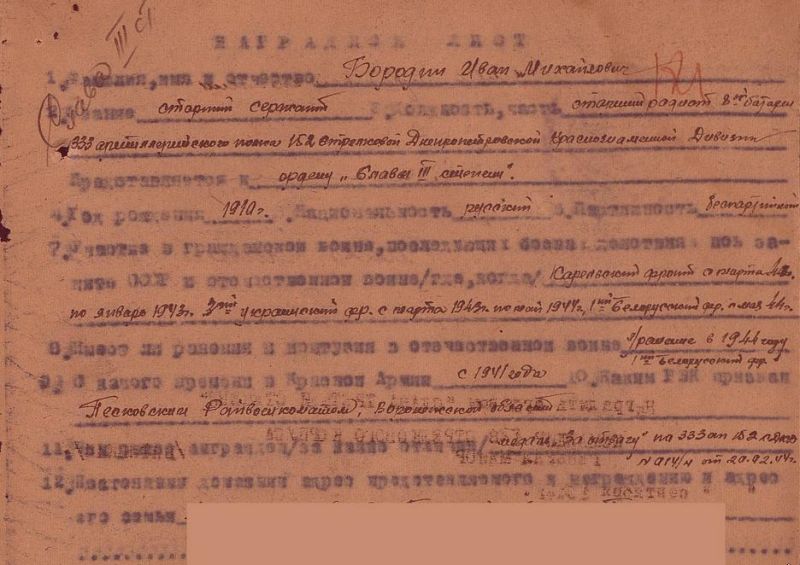 III ст
НАГРАДНОЙ ЛИСТ
1. Фамилия, имя и отчество Бородин Иван Михайлович
2. Звание старший сержант 3. Должность, часть старший радист 8ой батареи
333 артиллерийского полка 152 Стрелковой Днепропетровской Краснознаменной Дивизии
Представляется к ордену "Славы III степени".
4. Год рождения 1910 г. 5. Национальность русский 6. Партийность беспартийный
7. Участие в гражданской войне, последующих боевых действиях по за-
щите СССР и отечественной войне /где, когда/ Карельский фронт с марта
по январь 1943 г. украинский фр. с марта 1943 г. по май 1944 г., 1ый Белорусский фр. с мая 44 г.
8. Имеет ли ранения и контузии в отечественной войне ранение в 1944 году
1ый Белорусский фр.
9. С какого времени в Красной Армии с 1941 года 10. Каким РВК призван
Песковским Райвоенкоматом, Воронежской области
11. Чем ранее награжден /за какие отличия/ медаль "За отвагу" по 333 ап 152
от 20.02.44 г.
12. Постоянный домашний адрес представляемого к награждению и адрес
его семьи